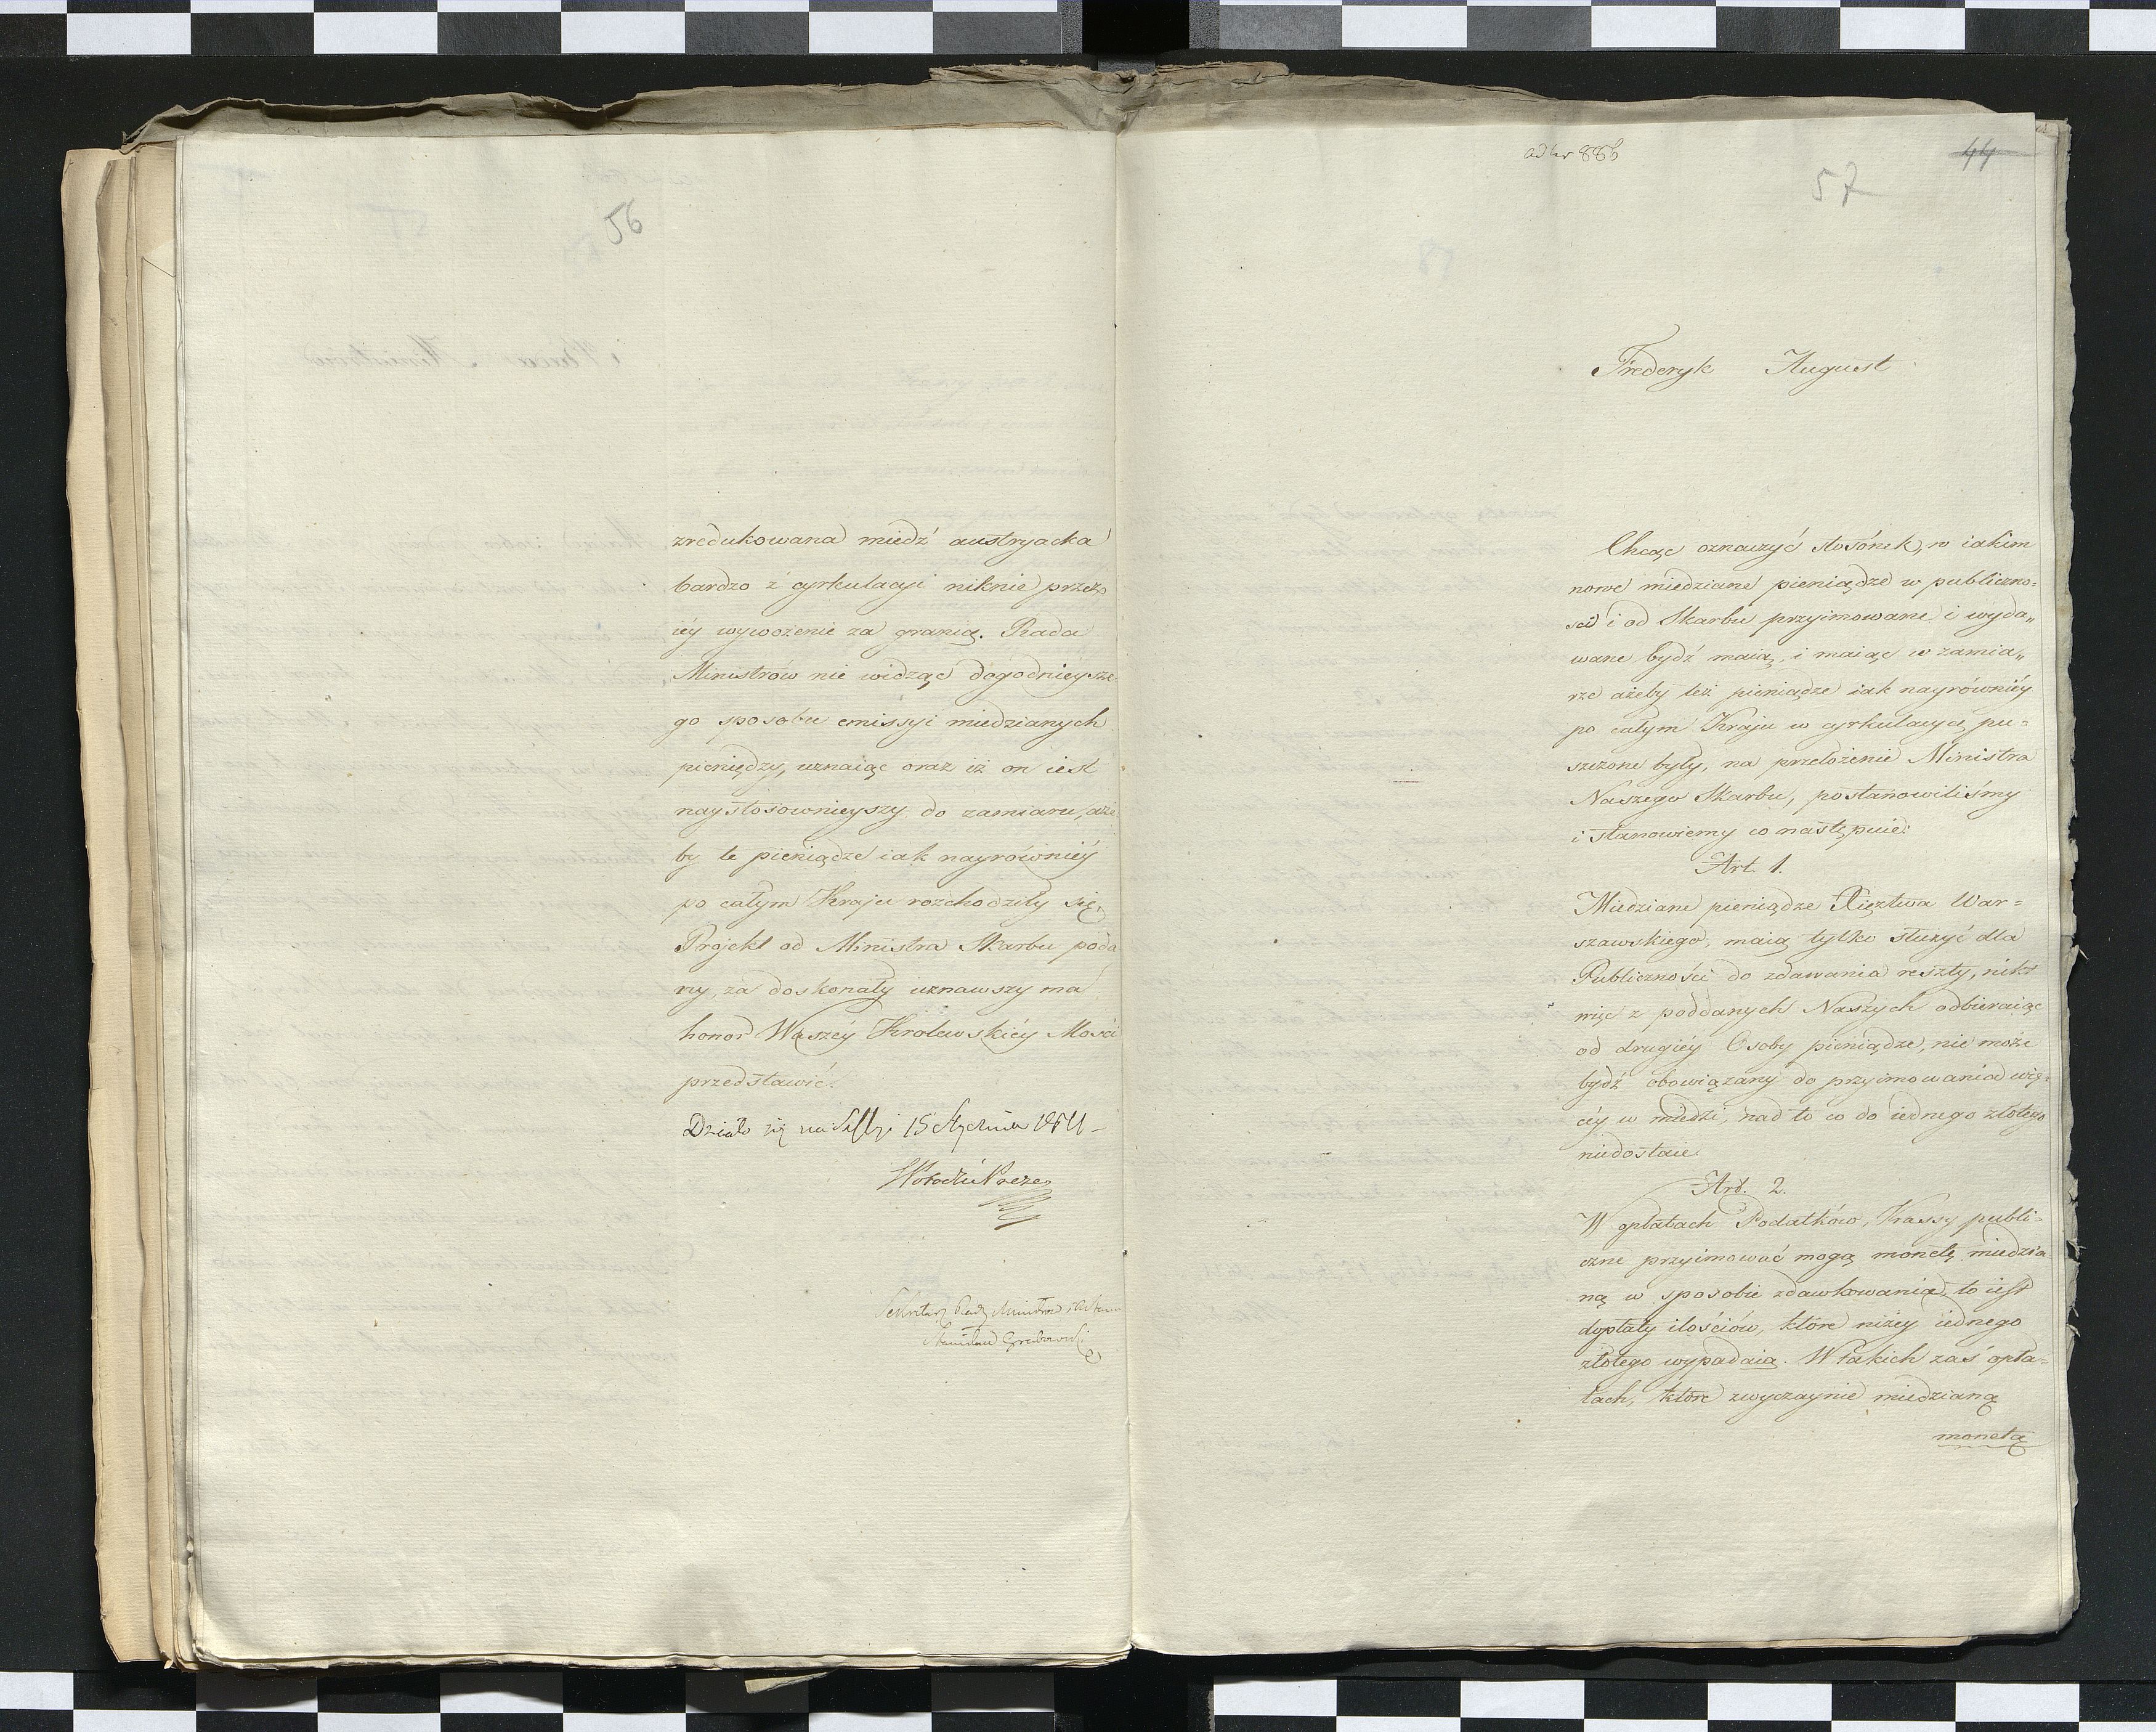 56
zredukowana miedź austryacka
bardzo z cyrkulacyi niknie przez
iéy wywożenie za granicę. Rada
Ministrów nie widząc dogodnieysze
go sposobu emissyi miedzianych
pieniędzy, uznaiąc oraz iż on iest
naystosownieyszy do zamiaru, aże
by te pieniądze iak nayrówniéy
po całym Kraju rozchodziły się,
Projekt od Ministra Skarbu poda
ny, za doskonały uznawszy ma
honor Waszéy Królewskiéy Mości
przedstawić.
Działo się na Sessyi 15 Stycznia 1811
Sekretarz Rady Ministrów
Stanisław Grabowski
ad Nr 886
44
57
Frederyk August
Chcąc oznaczyć stosónek, w iakim
nowe miedziane pieniądze w publiczno=
ści i od Skarbu przyimowane i wyda„
wane bydź maią, i maiąc w zamia„
rze ażeby też pieniądze iak nayrówniéy
po całym Kraju w cyrkulacyą pu=
szczone były, na przełożenie Ministra
Naszego Skarbu, postanowiliśmy
i stanowiemy co następuie:
Art. 1.
Miedziane pieniądze Xięztwa War=
szawskiego, maią tylko służyć dla
Publiczności do zdawania reszty, nikt
więc z poddanych Naszych odbieraiąc
od drugiéy Osoby pieniądze, nie może
bydź obowiązany do przyimowania wię=
céy w miedzi, nad to co do iednego złotego
niedostaie.
Art. 2.
W opłatach Podatków, Kassy publi=
czne przyimować mogą monetę miedzia
ną w sposobie zdawkowania, to iest
dopłaty ilościów, które niżéy iednego
złotego wypadaią. W takich zaś opła=
tach, które zwyczaynie miedzianą
monetą